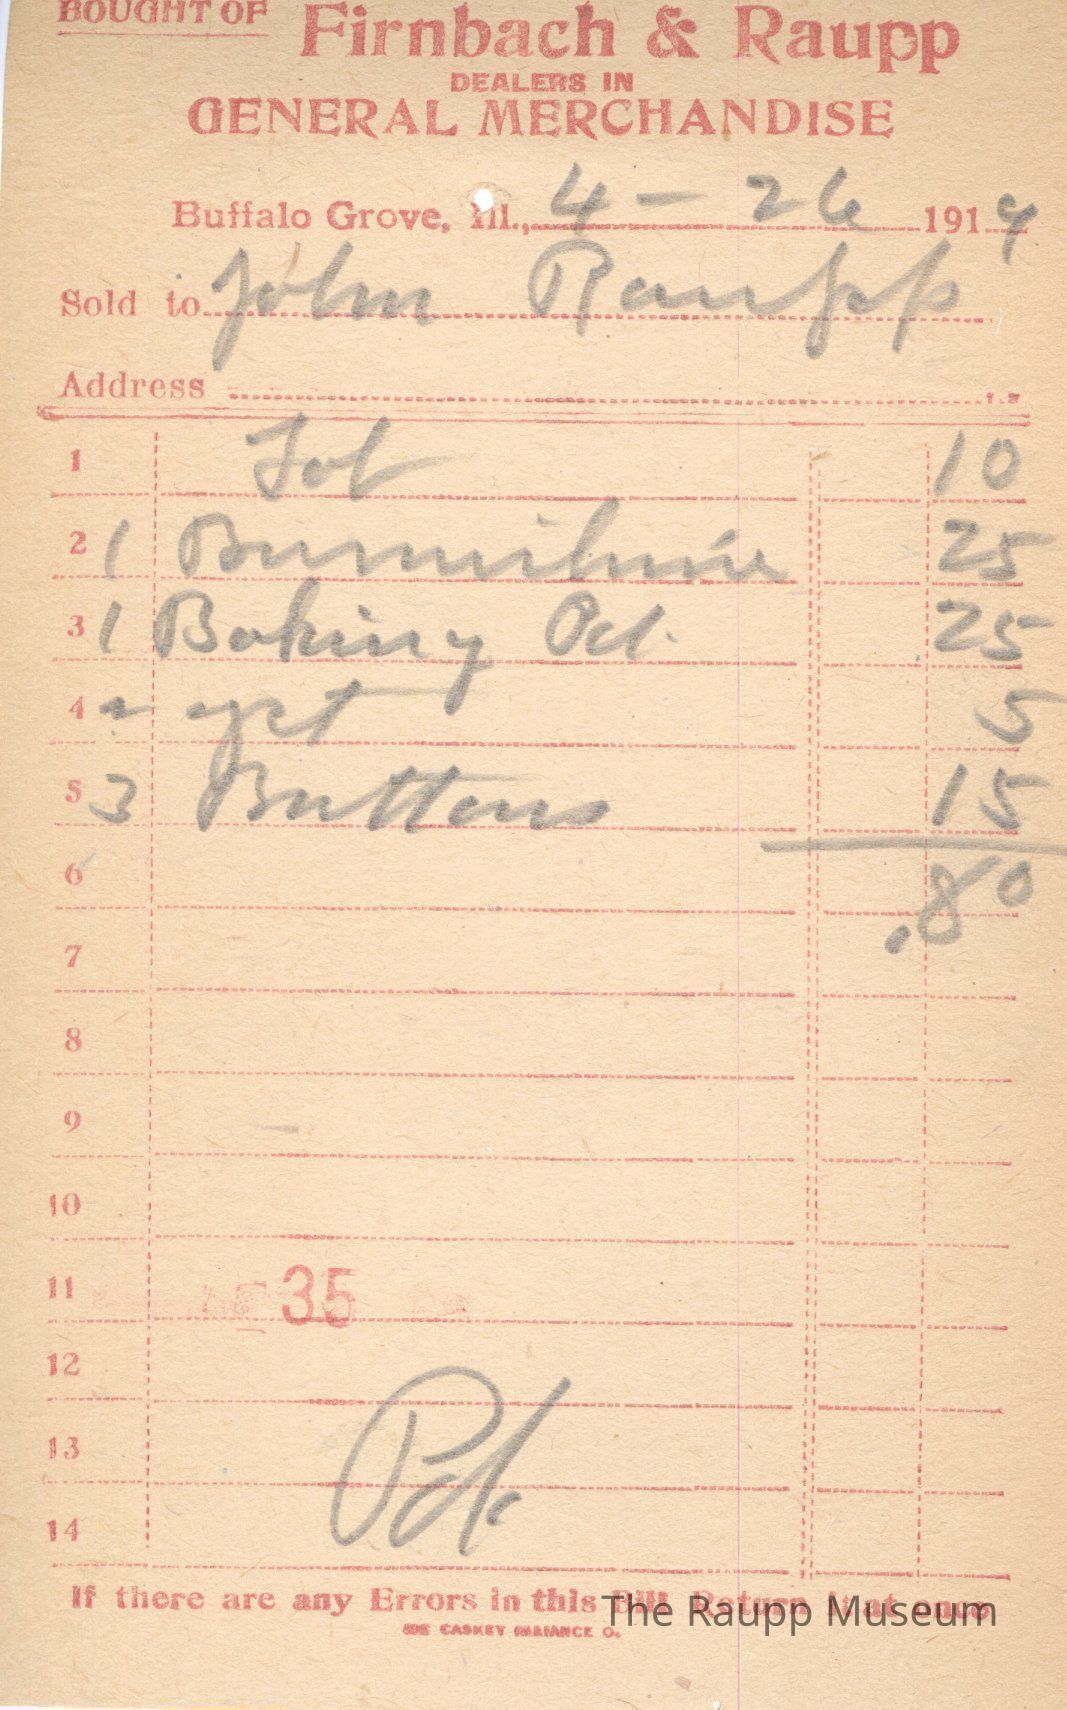 BOUGHT OF Firnbach & Raupp
DEALERS IN
GENERAL MERCHANDISE
Buffalo Grove, Ill., 4 - 26 1914
Sold to John Raupp
Address
1 Tob 10
2 1 25
3 1 Baking Pd. 25
4 yst 5
5 3 Buttons 15
6 .80
7
8
9
10
11 35
12
13 Pd.
14
If there are any Errors in this Bill Return it at once
The Raupp Museum